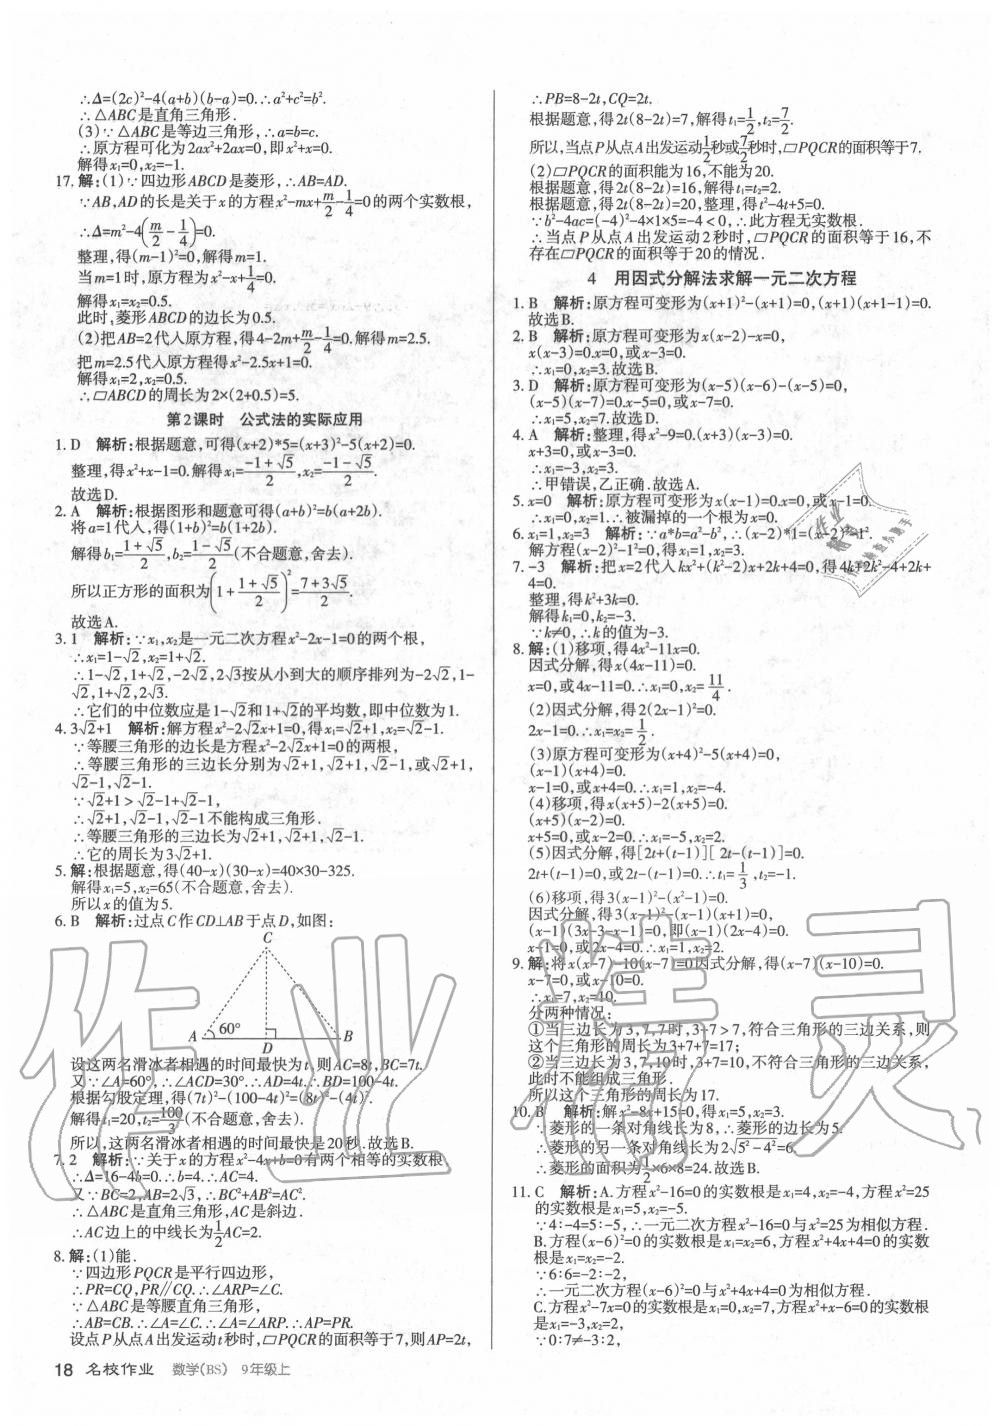 ∴Δ=(2c)²-4(a+b)(b-a)=0.∴a²+c²=b².
∴△ABC是直角三角形.
(3)∵△ABC是等边三角形,∴a=b=c.
∴原方程可化为2ax²+2ax=0,即x²+x=0.
解得x₁=0,x₂=-1.
17.解:(1)∵四边形ABCD是菱形,∴AB=AD.
∵AB,AD的长是关于x的方程x²-mx+m/2-1/4=0的两个实数根,
∴Δ=m²-4(m/2-1/4)=0.
整理,得(m-1)²=0.解得m=1.
当m=1时,原方程为x²-x+1/4=0.
解得x₁=x₂=0.5.
此时,菱形ABCD的边长为0.5.
(2)把AB=2代入原方程,得4-2m+m/2-1/4=0.解得m=2.5.
把m=2.5代入原方程,得x²-2.5x+1=0.
解得x₁=2,x₂=0.5.
∴▱ABCD的周长为2×(2+0.5)=5.
第2课时 公式法的实际应用
1.D 解析:根据题意,可得(x+2)*5=(x+3)²-5(x+2)=0.
整理,得x²+x-1=0.解得x₁=(-1+√5)/2,x₂=(-1-√5)/2.
故选D.
2.A 解析:根据图形和题意可得(a+b)²=b(a+2b).
将a=1代入,得(1+b)²=b(1+2b).
解得b₁=(1+√5)/2,b₂=(1-√5)/2(不合题意,舍去).
所以正方形的面积为(1+(1+√5)/2)²=(7+3√5)/2.
故选A.
3.1 解析:∵x₁,x₂是一元二次方程x²-2x-1=0的两个根,
∴x₁=1-√2,x₂=1+√2.
∴1-√2,1+√2,-2√2,2√3按从小到大的顺序排列为-2√2,1-
√2,1+√2,2√3.
∴它们的中位数应是1-√2和1+√2的平均数,即中位数为1.
4.3√2+1 解析:解方程x²-2√2x+1=0,得x₁=√2+1,x₂=√2-1.
∵等腰三角形的边长是方程x²-2√2x+1=0的两根,
∴等腰三角形的三边长分别为√2+1,√2+1,√2-1,或√2+1,
√2-1,√2-1.
∵√2+1>√2-1+√2-1,
∴√2+1,√2-1,√2-1不能构成三角形.
∴等腰三角形的三边长为√2+1,√2+1,√2-1.
∴它的周长为3√2+1.
5.解:根据题意,得(40-x)(30-x)=40×30-325.
解得x₁=5,x₂=65(不合题意,舍去).
所以x的值为5.
6.B 解析:过点C作CD⊥AB于点D,如图:
C
A 60° D B
设这两名滑冰者相遇的时间最快为t,则AC=8t,BC=7t.
又∵∠A=60°,∴∠ACD=30°.∴AD=4t.∴BD=100-4t.
根据勾股定理,得(7t)²-(100-4t)²=(8t)²-(4t)².
解得t₁=20,t₂=100/3(不合题意,舍去).
所以,这两名滑冰者相遇的时间最快是20秒.故选B.
7.2 解析:∵关于x的方程x²-4x+b=0有两个相等的实数根,
∴Δ=16-4b=0.∴b=4.∴AC=4.
又∵BC=2,AB=2√3,∴BC²+AB²=AC².
∴△ABC是直角三角形,AC是斜边.
∴AC边上的中线长为1/2AC=2.
8.解:(1)能.
∵四边形PQCR是平行四边形,
∴PR=CQ,PR∥CQ.∴∠ARP=∠C.
∵△ABC是等腰直角三角形,
∴AB=CB.∴∠A=∠C.∴∠A=∠ARP.∴AP=PR.
设点P从点A出发运动t秒时,▱PQCR的面积等于7,则AP=2t,
∴PB=8-2t,CQ=2t.
根据题意,得2t(8-2t)=7,解得t₁=1/2,t₂=7/2.
所以,当点P从点A出发运动1/2秒或7/2秒时,▱PQCR的面积等于7.
(2)▱PQCR的面积能为16,不能为20.
根据题意,得2t(8-2t)=16,解得t₁=t₂=2.
根据题意,得2t(8-2t)=20,整理,得t²-4t+5=0.
∵b²-4ac=(-4)²-4×1×5=-4<0,∴此方程无实数根.
∴当点P从点A出发运动2秒时,▱PQCR的面积等于16,不
存在▱PQCR的面积等于20的情况.
4 用因式分解法求解一元二次方程
1.B 解析:原方程可变形为(x+1)²-(x+1)=0,(x+1)(x+1-1)=0.
故选B.
2.B 解析:原方程可变形为x(x-2)-x=0,
x(x-3)=0.x=0,或x-3=0.
∴x₁=0,x₂=3.故选B.
3.D 解析:原方程可变形为(x-5)(x-6)-(x-5)=0,
(x-5)(x-7)=0.x-5=0,或x-7=0.
∴x₁=5,x₂=7.故选D.
4.A 解析:整理,得x²-9=0.(x+3)(x-3)=0.
x+3=0,或x-3=0.
∴x₁=-3,x₂=3.
∴甲错误,乙正确.故选A.
5.x=0 解析:原方程可变形为x(x-1)=0.x=0,或x-1=0.
∴x₁=0,x₂=1.∴被漏掉的一个根为x=0.
6.x₁=1,x₂=3 解析:∵a*b=a²-b²,∴(x-2)*1=(x-2)²-1².
解方程(x-2)²-1²=0,得x₁=1,x₂=3.
7.-3 解析:把x=2代入kx²+(k²-2)x+2k+4=0,得4k+2k²-4+2k+
4=0.
整理,得k²+3k=0.
解得k₁=0,k₂=-3.
∵k≠0,∴k的值为-3.
8.解:(1)移项,得4x²-11x=0.
因式分解,得x(4x-11)=0.
x=0,或4x-11=0.∴x₁=0,x₂=11/4.
(2)因式分解,得2(2x-1)²=0.
2x-1=0.∴x₁=x₂=1/2.
(3)原方程可变形为(x+4)²-5(x+4)=0.
(x-1)(x+4)=0.
x-1=0,或x+4=0.∴x₁=1,x₂=-4.
(4)移项,得x(x+5)-2(x+5)=0.
(x+5)(x-2)=0.
x+5=0,或x-2=0.∴x₁=-5,x₂=2.
(5)因式分解,得[2t+(t-1)][2t-(t-1)]=0.
2t+(t-1)=0,或2t-(t-1)=0.∴t₁=1/3,t₂=-1.
(6)移项,得3(x-1)²-(x²-1)=0.
因式分解,得3(x-1)²-(x+1)(x-1)=0.
(x-1)(3x-3-x-1)=0,即(x-1)(2x-4)=0.
x-1=0,或2x-4=0.∴x₁=1,x₂=2.
9.解:将x(x-7)-10(x-7)=0因式分解,得(x-7)(x-10)=0.
x-7=0,或x-10=0.
∴x₁=7,x₂=10.
分两种情况:
①当三边长为3,7,7时,3+7>7,符合三角形的三边关系,则
这个三角形的周长为3+7+7=17;
②当三边长为3,7,10时,3+7=10,不符合三角形的三边关系,
此时不能组成三角形.
所以这个三角形的周长为17.
10.B 解析:解x²-8x+15=0,得x₁=5,x₂=3.
∵菱形的一条对角线长为8,∴菱形的边长为5.
∴菱形的另一条对角线长为2√(5²-4²)=6.
∴菱形的面积为1/2×6×8=24.故选B.
11.C 解析:A.方程x²-16=0的实数根是x₁=4,x₂=-4,方程x²=25
的实数根是x₁=5,x₂=-5.
∵4∶-4=5∶-5,∴一元二次方程x²-16=0与x²=25为相似方程.
B.方程(x-6)²=0的实数根是x₁=x₂=6,方程x²+4x+4=0的实数根
是x₁=x₂=-2.
∵6∶6=-2∶-2,
∴一元二次方程(x-6)²=0与x²+4x+4=0为相似方程.
C.方程x²-7x=0的实数根是x₁=0,x₂=7,方程x²+x-6=0的实数根
是x₁=-3,x₂=2.
∵0∶7≠-3∶2,
18 名校作业 数学(BS) 9年级上
作业精灵